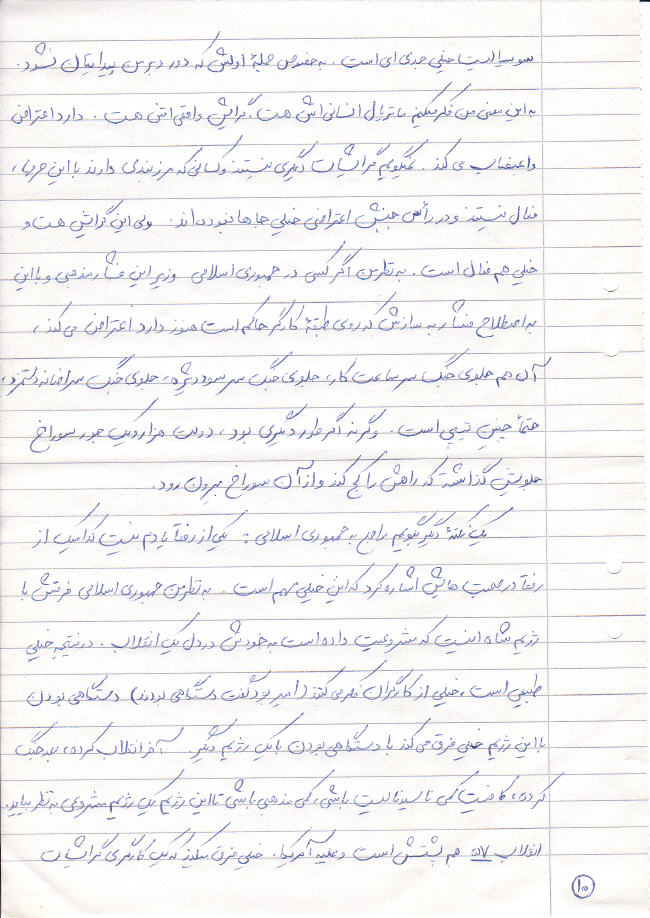 سوسیالیست خیلی جدی ای است. به خصوص جملهٔ اولش که دور و برمن پیدایتان نشود.
به این معنی من فکر میکنم ماتریال انسانی اش هست، گرایش واقعی اش هست. دارد اعتراض
و اعتصاب می کند. نمیگویم گرایشات دیگری نیستند و کسانی که مرزبندی دارند با این حرفها،
فعال نیستند و در رأس جنبش اعتراضی خیلی جاها نبوده اند. ولی این گرایش هست و
خیلی هم فعال است. به نظر من اگر کسی در جمهوری اسلامی و زیر این فشار مذهبی و با این
به اصطلاح فشار به سازش که روی طبقهٔ کارگر حاکم است هنوز دارد اعتراض می کند،
آن هم جلوی جنگ سر ساعت کار، جلوی جنگ سر سود ویژه، جلوی جنگ سر اضافه دستمزد،
حتماً چنین تیپی است. وگرنه اگر طور دیگری بود، دولت هزار و یک جور سوراخ
جلویش گذاشته که راهش را کج کند و از آن سوراخ بیرون رود.
یک نکتهٔ دیگر بگویم راجع به جمهوری اسلامی: یکی از رفقا یادم نیست کدامیک از
رفقا در صحبت هایش اشاره کرد که این خیلی مهم است. به نظر من جمهوری اسلامی فرقش با
رژیم شاه اینست که مشروعیت داده است به خودش در دل یک انقلاب. در نتیجه خیلی
طبیعی است، خیلی از کارگران فکر می کنند (امیر بود گفت دستگاهی بودند) دستگاهی بودن
با این رژیم خیلی فرق می کند با دستگاهی بودن با یک رژیم دیگر. آخر انقلاب کرده، بعد جنگ
کرده، کافیست کمی ناسیونالیست باشی، کمی مذهبی باشی تا این رژیم یک رژیم مشروعی به نظر بیاید.
انقلاب ۵۷ هم پشتش است و علیه آمریکا. خیلی فرق میکند که یک کارگری گرایشات
۱۰